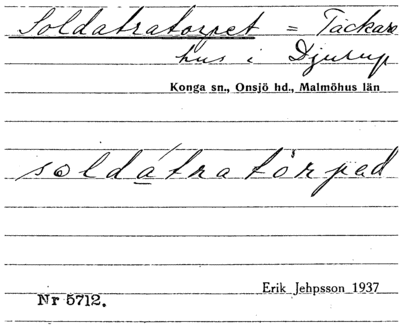 Soldatratorpet = Täckare
hus i Djurup
Konga sn., Onsjö hd., Malmöhus län
soldátratŏrpad
Erik Jehpsson 1937
Nr 5712.